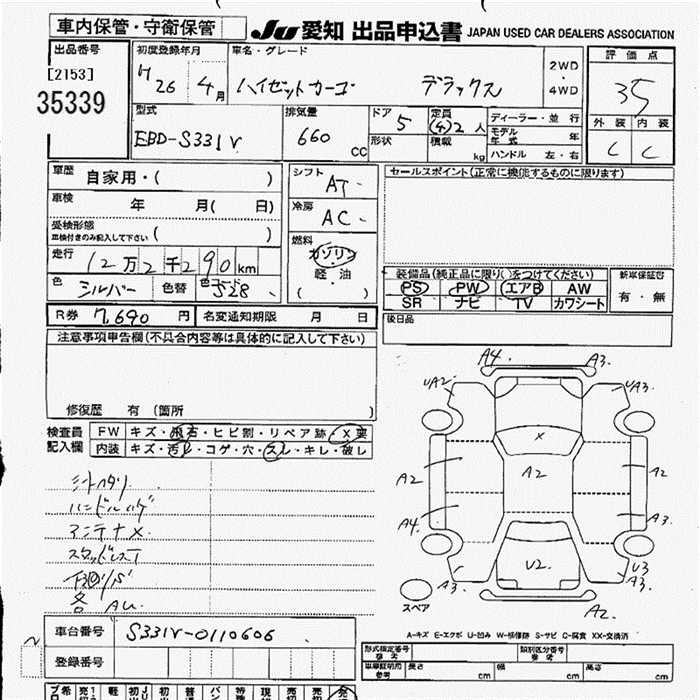 車内保管・守衛保管
JU 愛知 出品申込書 JAPAN USED CAR DEALERS ASSOCIATION
出品番号
[2153]
35339
初度登録年月
H 26 年 4 月
車名・グレード
ハイゼットカーゴ デラックス
2WD・4WD
評価点
35
外装 内装
C C
型式
EBD-S331V
排気量
660 CC
ドア
5
形状
定員
(4)2 人
積載 kg
ディーラー・並行
モデル年式 年
ハンドル 左・右
車歴 自家用・( )
車検 年 月( 日)
受検形態
車検付きのみ記入して下さい ( )
走行 12万2千290km
色 シルバー 色替 色コード S28
シフト
AT
冷房
AC
燃料
ガソリン
軽・油
( )
セールスポイント(正常に機能するものに限ります)
装備品(純正品に限り○をつけてください)
PS PW エアB AW
SR ナビ TV カワシート
新車保証書
有・無
R券 7,690 円 名変通知期限 月 日
後日品
注意事項申告欄(不具合内容等は具体的に記入して下さい)
修復歴 有 (箇所 )
検査員記入欄
FW キズ・飛石・ヒビ割・リペア跡・X要
内装 キズ・汚レ・コゲ・穴・スレ・キレ・破レ
シートヘタリ
ハンドルハゲ
アンテナX
スタッドレスT
下回りS
各AU
A4 A3
UA2 UA3
X
A2 A2 A2
A4 A3
U2
A3 U3
A3
A2
スペア
A-キズ E-エクボ U-凹み W-補修跡 S-サビ C-腐食 XX-交換済
車台番号 S331V-0110606
登録番号
型式指定番号 参考 類別区分番号 参考
車庫証明用 参考 長さ cm 幅 cm 高さ cm